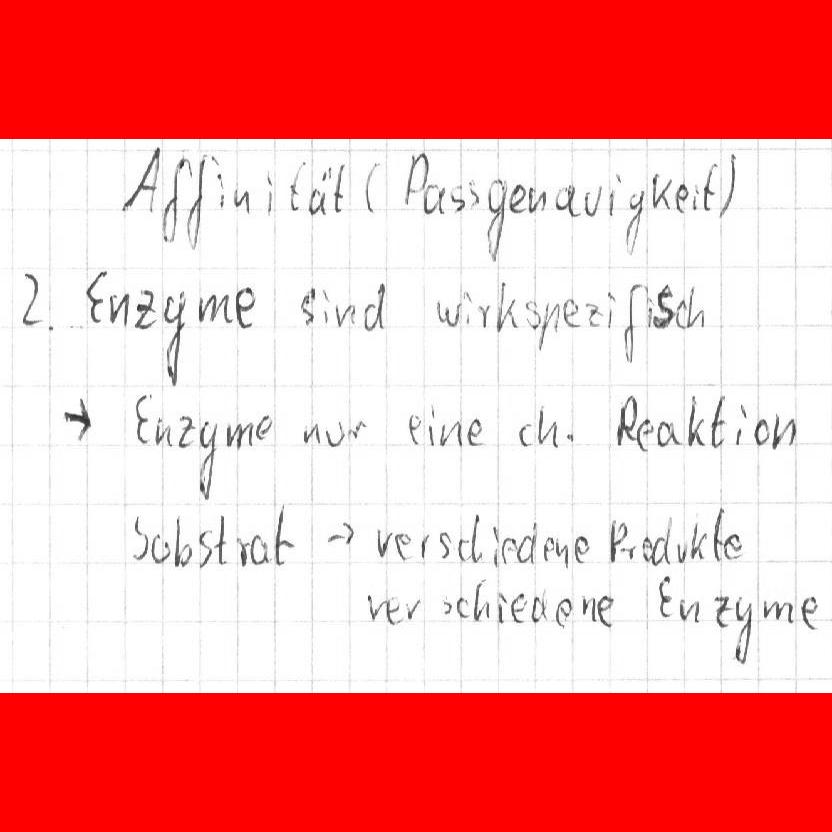 Affinität (Passgenauigkeit)
2. Enzyme sind wirkspezifisch
→ Enzyme nur eine ch. Reaktion
Substrat → verschiedene Produkte
verschiedene Enzyme